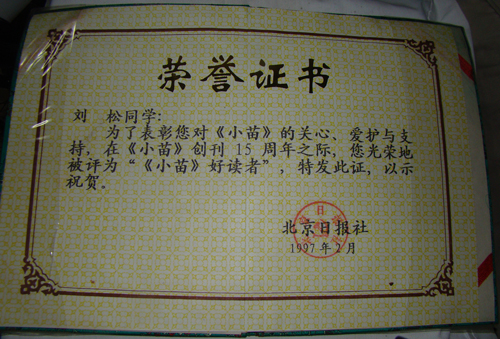 荣誉证书
刘 松同学:
为了表彰您对《小苗》的关心、爱护与支
持,在《小苗》创刊 15 周年之际,您光荣地
被评为“《小苗》好读者”,特发此证,以示
祝贺。
北京日报社
1997年2月